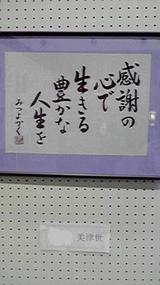 感謝の
心で
生きる
豊かな
人生を
みつよかく
美津世